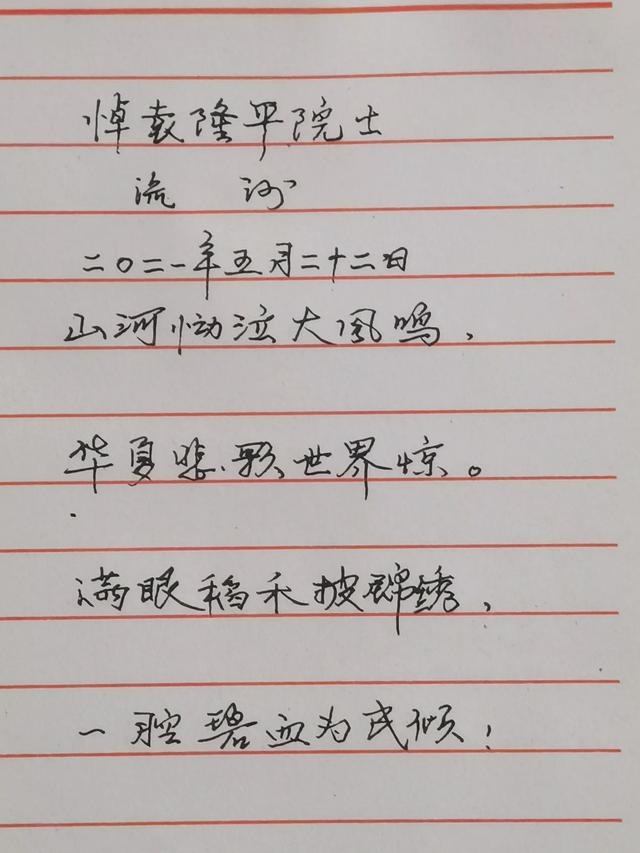 悼袁隆平院士
流 沙
二〇二一年五月二十二日
山河恸泣大风鸣,
华夏悲歌世界惊。
满眼稻禾披锦绣,
一腔碧血为民倾!